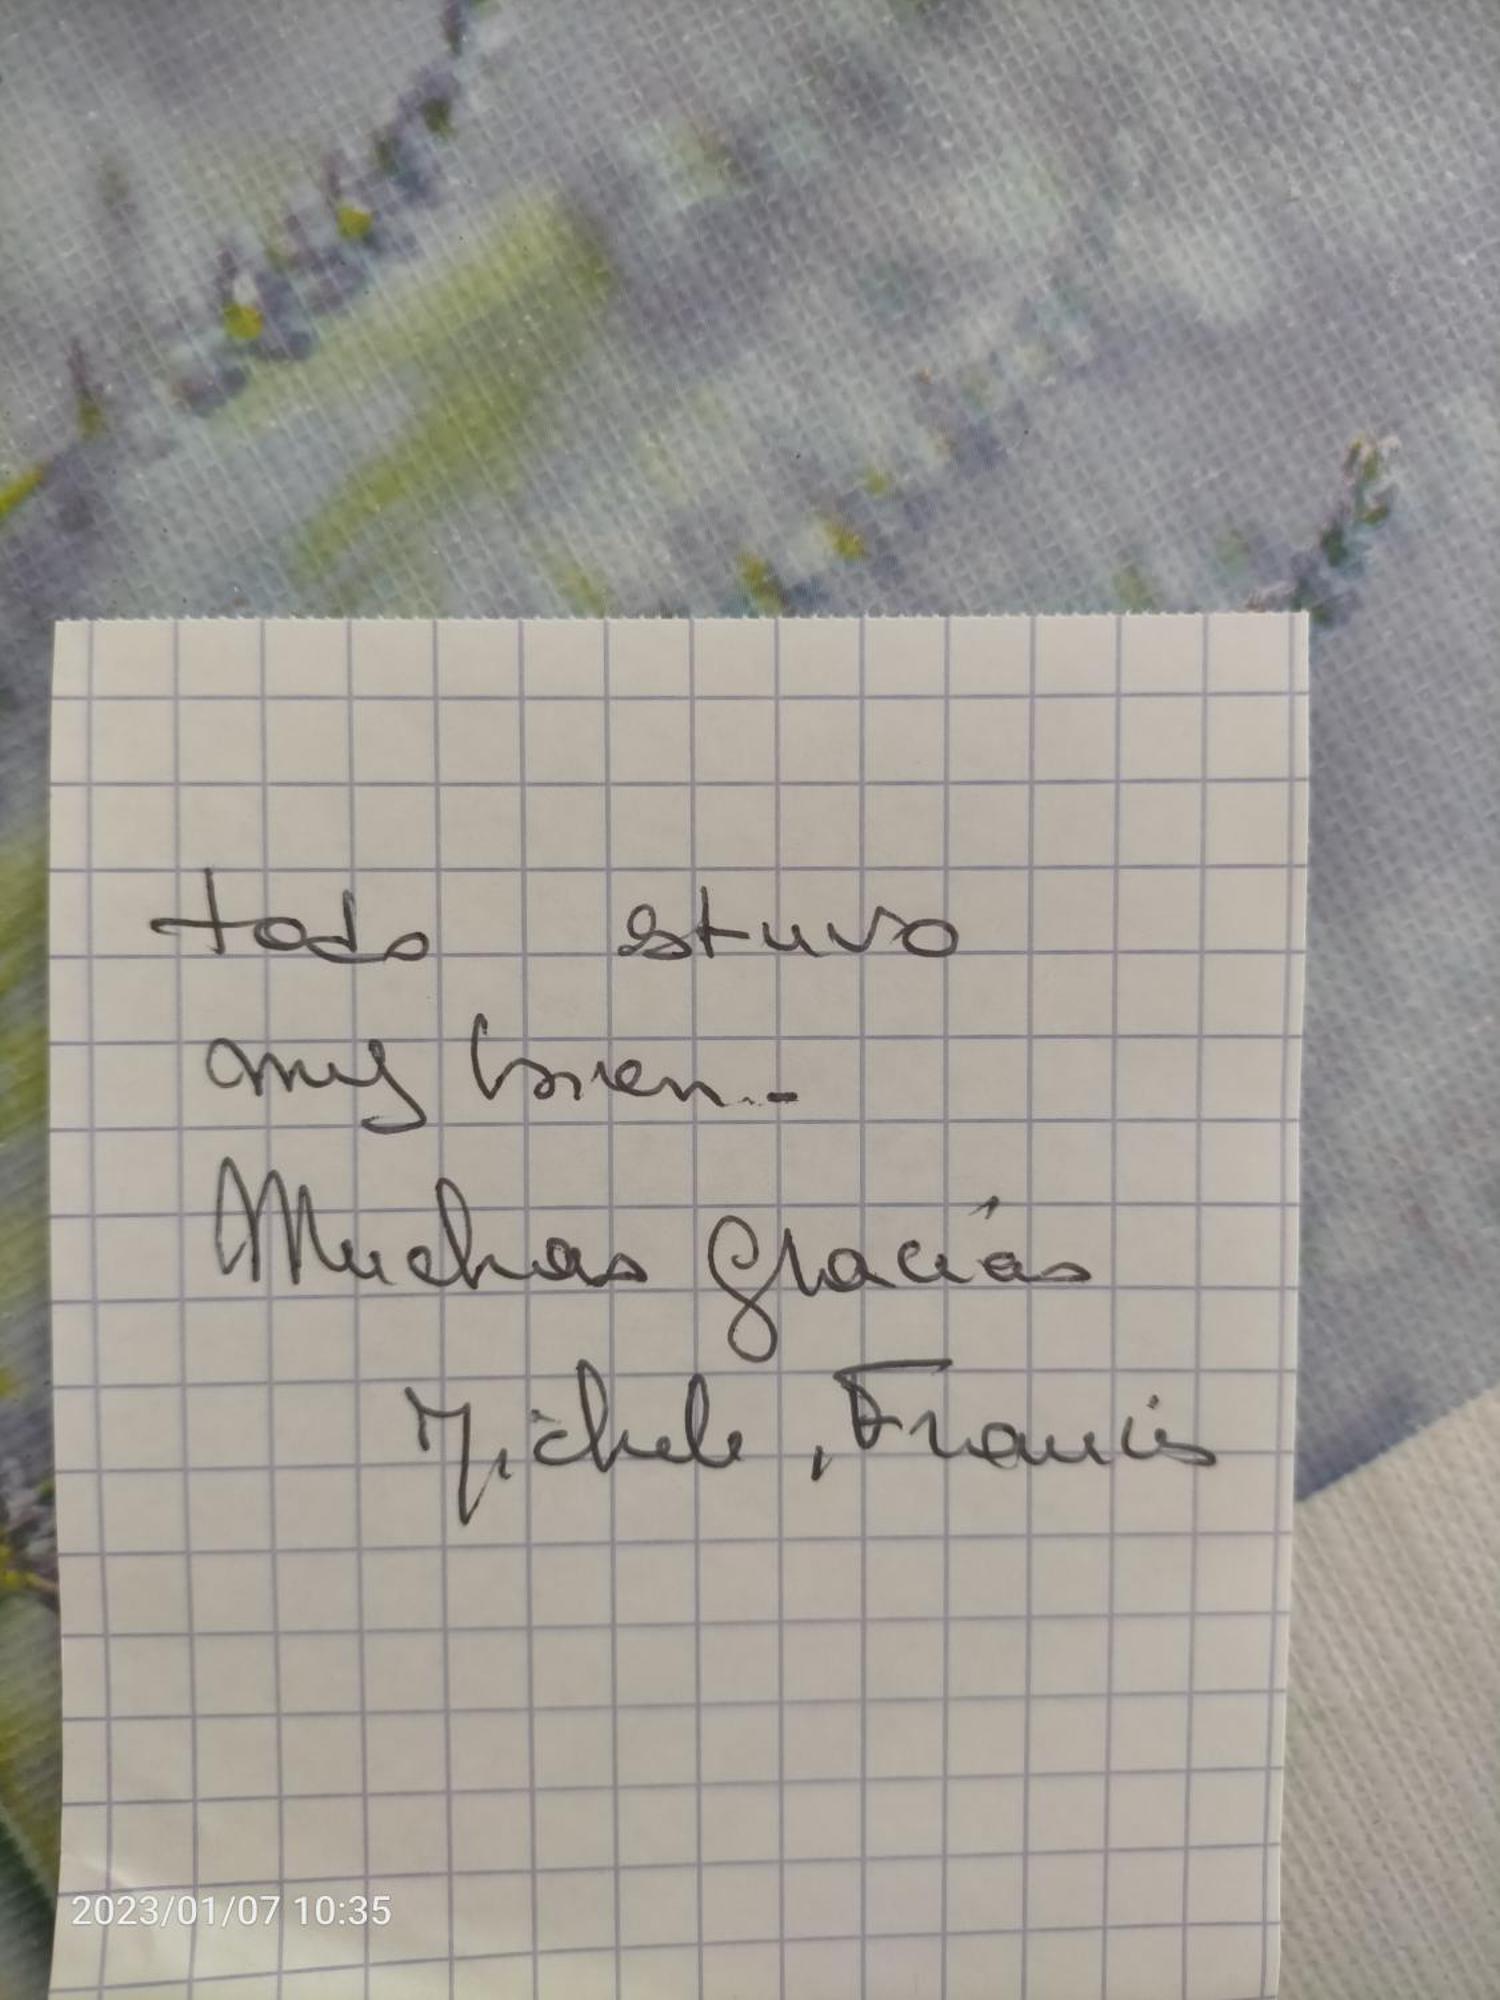 todo estuvo
muy bien.-
Muchas graciás
Michele, Francis
2023/01/07 10:35